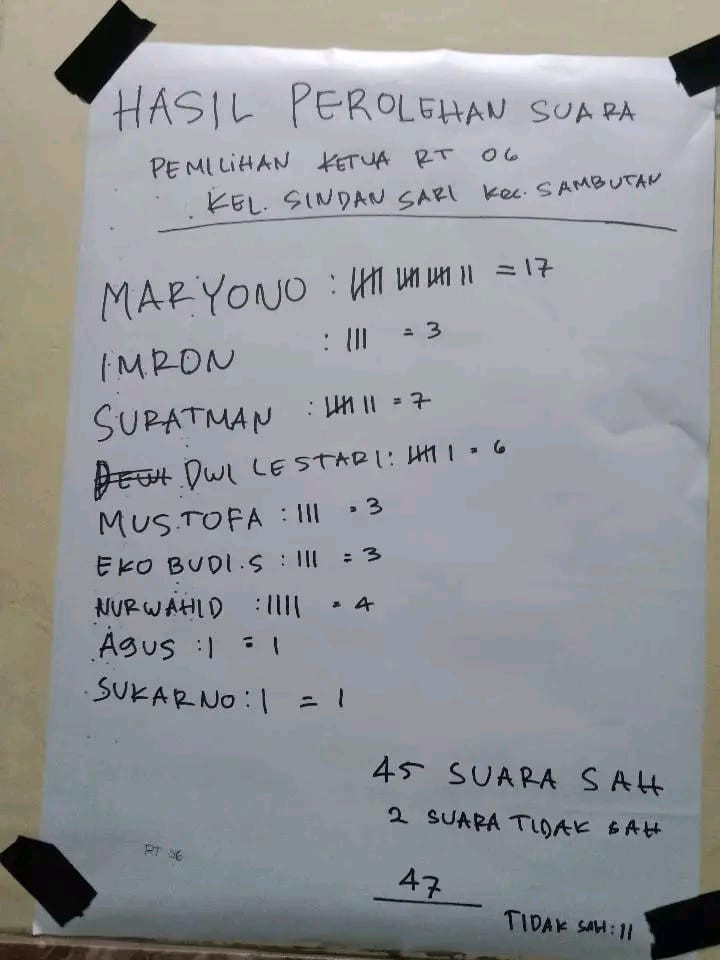 HASIL PEROLEHAN SUARA
PEMILIHAN KETUA RT 06
KEL. SINDAN SARI KEC. SAMBUTAN
MARYONO : |||| |||| |||| || = 17
IMRON : ||| = 3
SURATMAN : |||| || = 7
DEWI DWI LESTARI : |||| | = 6
MUSTOFA : ||| = 3
EKO BUDI.S : ||| = 3
NURWAHID : |||| = 4
AGUS : | = 1
SUKARNO : | = 1
45 SUARA SAH
2 SUARA TIDAK SAH
47
RT 06
TIDAK SAH : ||